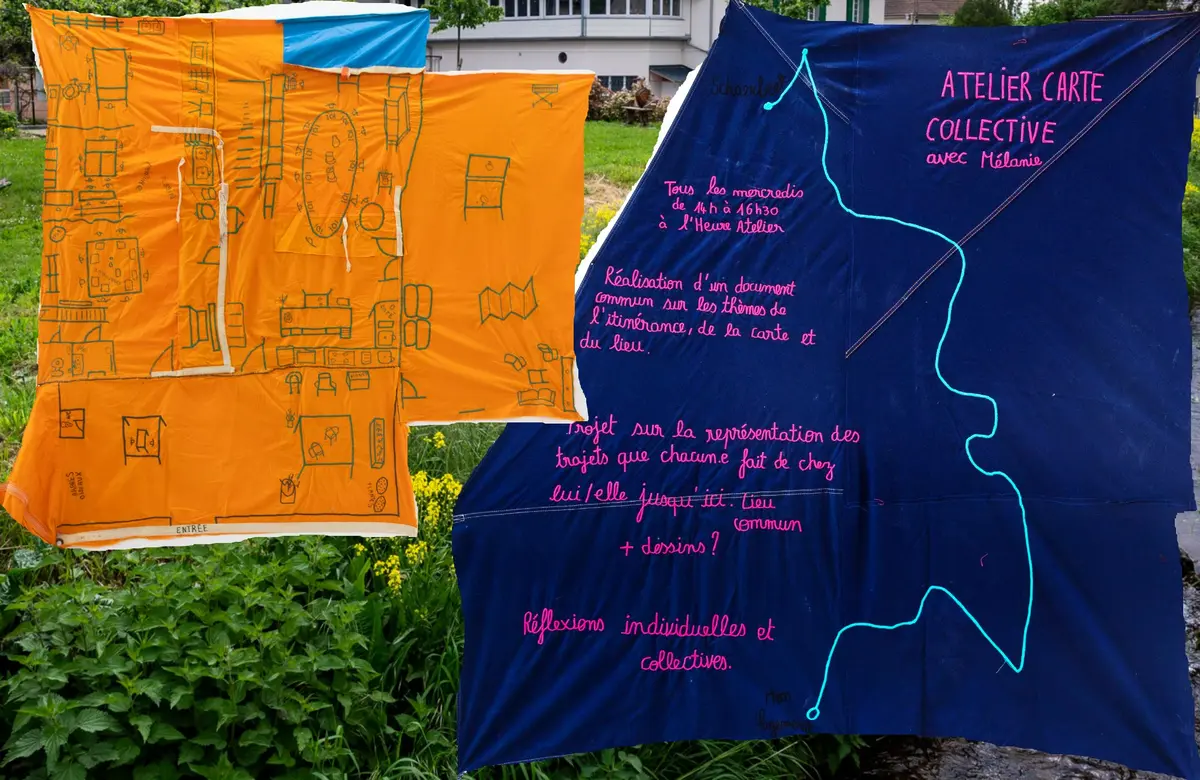 ATELIER CARTE
COLLECTIVE
avec Mélanie
Tous les mercredis
de 14h à 16h30
à l'Heure Atelier
Réalisation d'un document
commun sur les thèmes de
l'itinérance, de la carte et
du lieu.
Projet sur la représentation des
trajets que chacun.e fait de chez
lui/elle jusqu'ici. Lieu
commun
+ dessins?
Réflexions individuelles et
collectives.
ENTRÉE